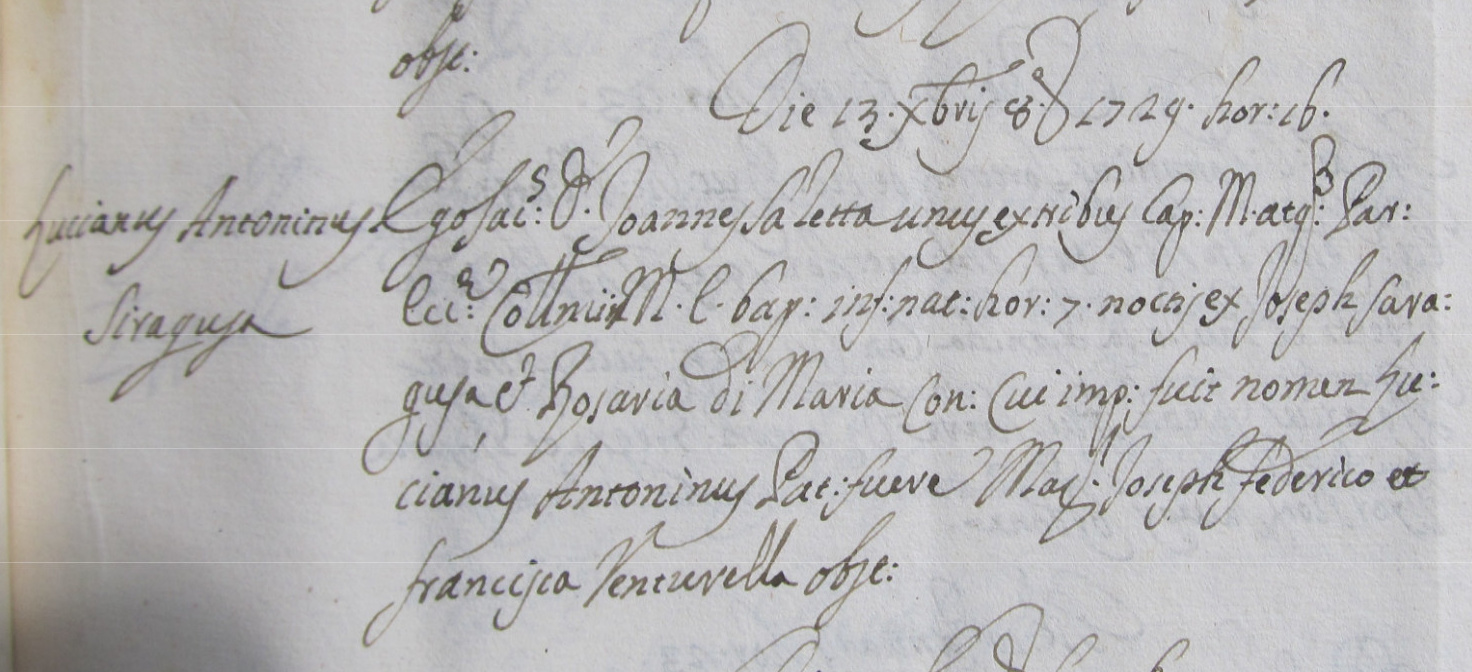 obst:
Die 13. Xbris 8.ª I. 1729. hor: 16.
Lucianus Antoninus
Siragusa
Ego Sac:s D. Joannes Saletta unus ex tribus Cap: M. atq: Par:
Ecc: M. C. bap: inf: nat: hor: 7. noctis ex Joseph Sara:
gusa et Rosaria di Maria Con: Cui imp: fuit nomen Lu:
cianus Antoninus Pat: fuere Mag: Joseph Federico et
Francisca Venturella obst: